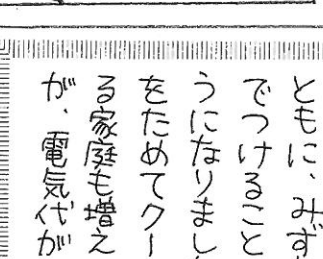 ともに、みず
でつけること
うになりまし
をためてクー
る家庭も増え
が、電気代が